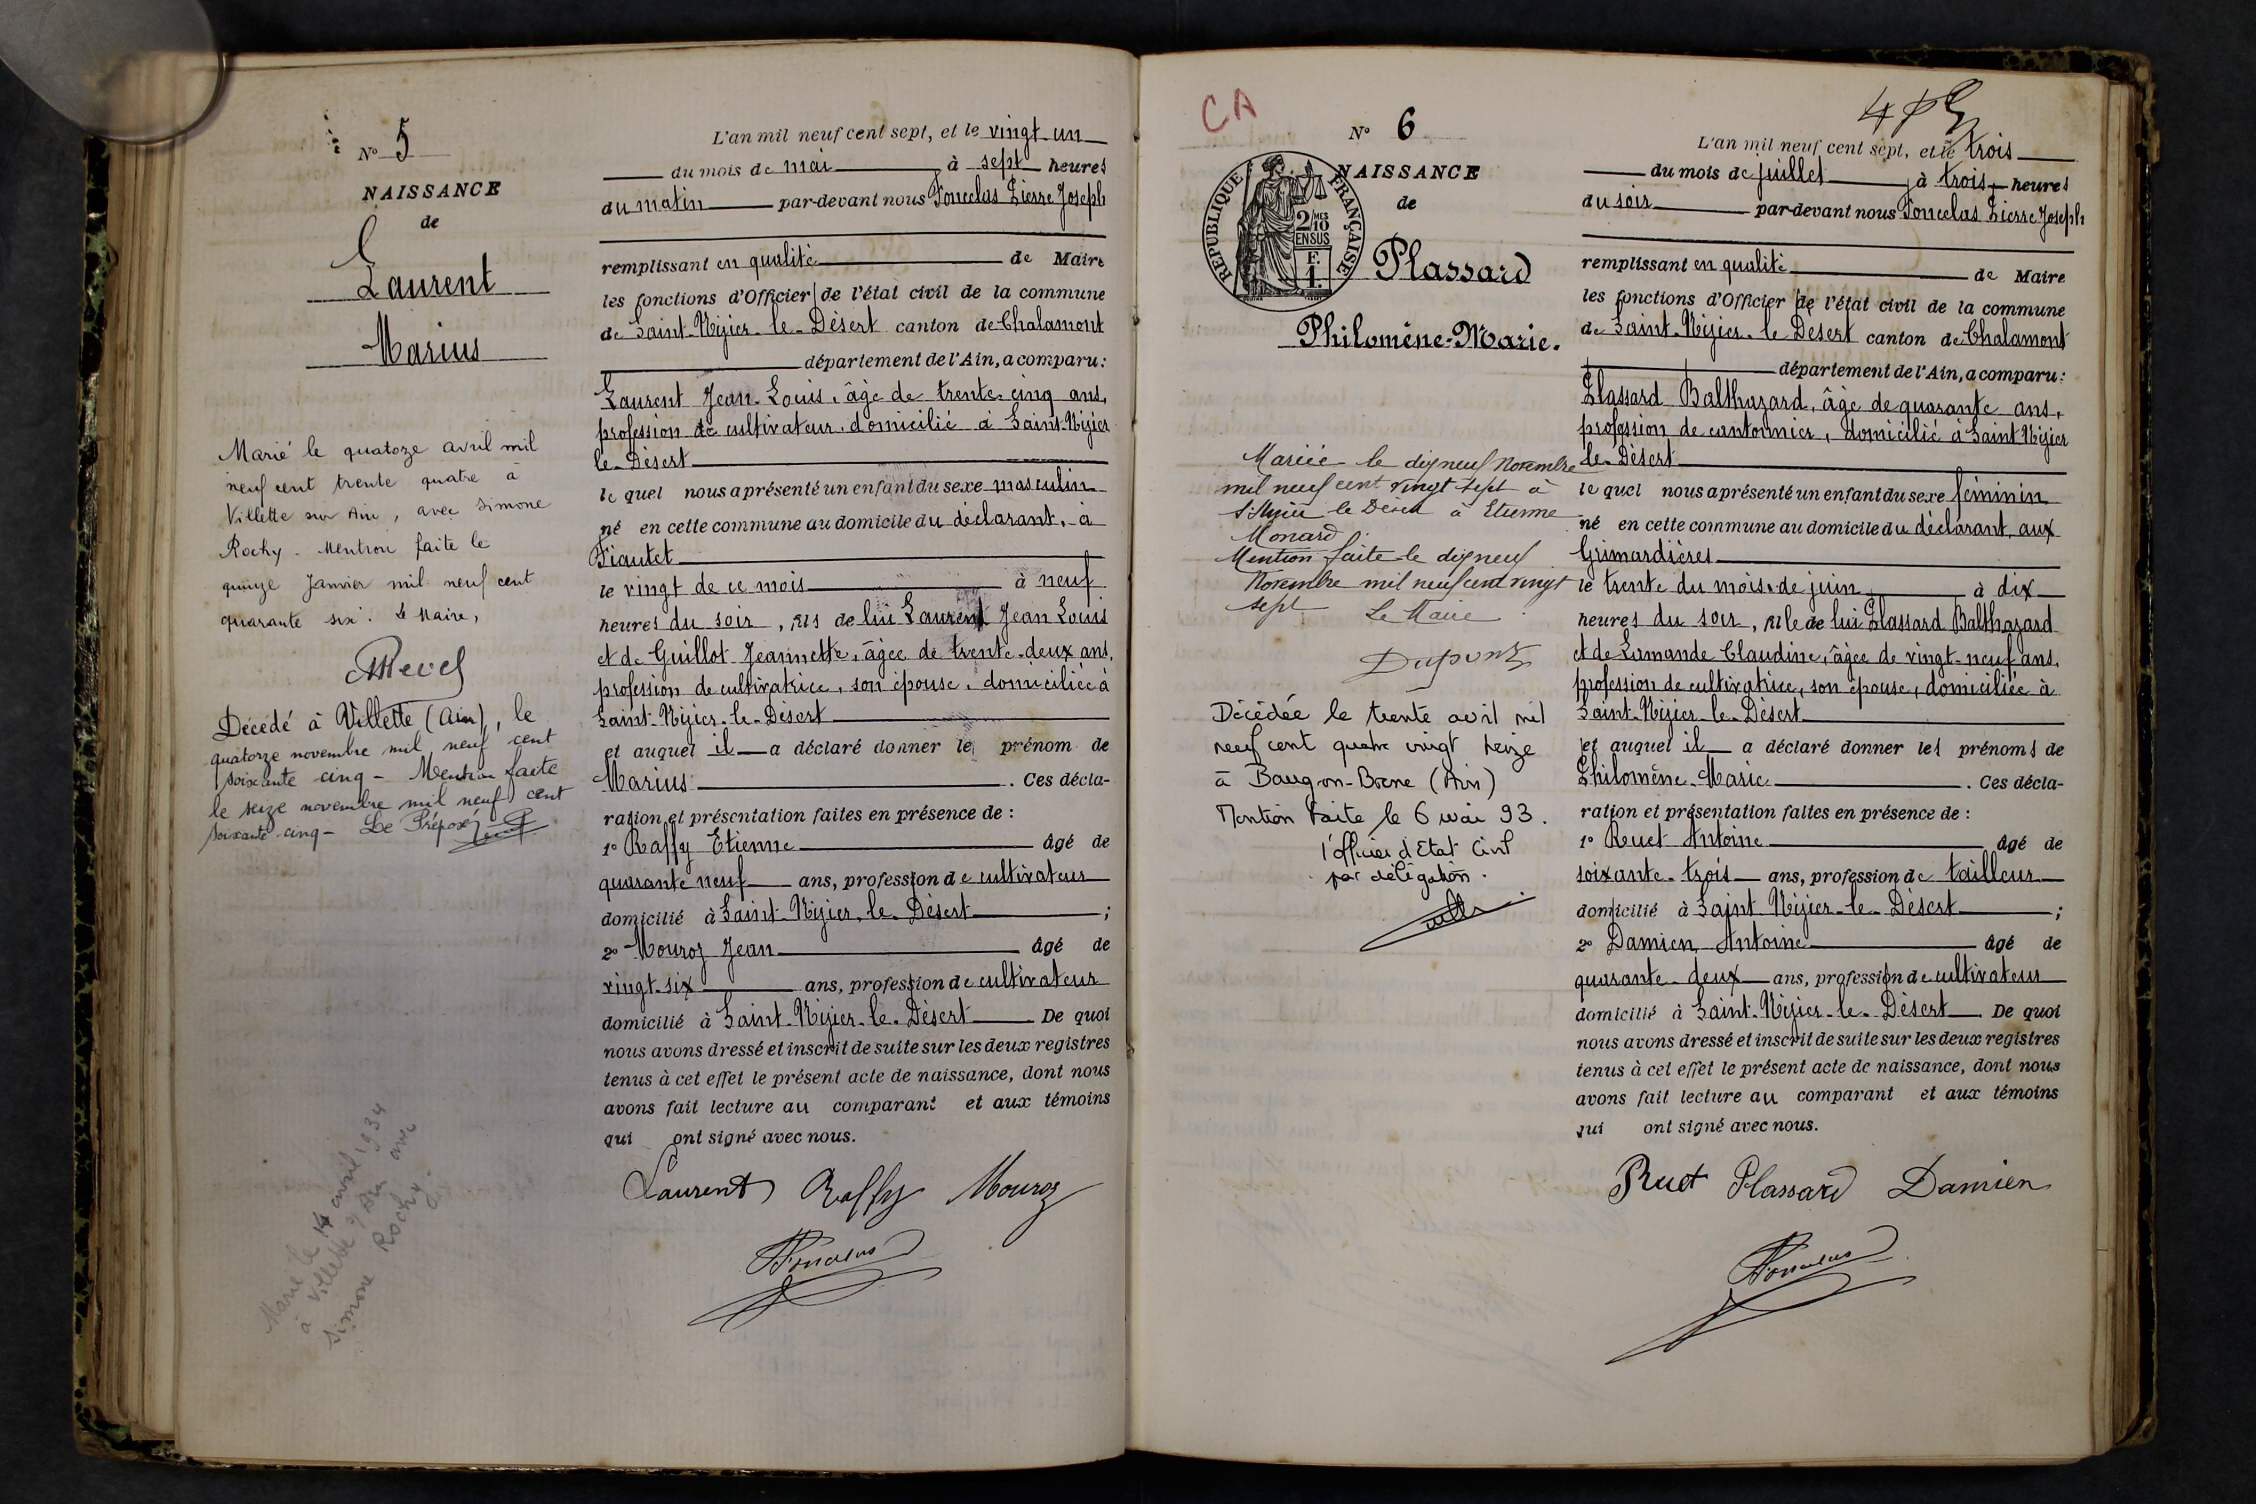 N° 5
NAISSANCE
de
Laurent
Marius
Marié le quatoze avril mil
neuf cent trente quatre à
Villette sur Ain, avec Simone
Rochy. Mention faite le
quinze Janvier mil neuf cent
quarante six. Le Maire,
Décédé à Villette (Ain), le
quatorze novembre mil neuf cent
soixante cinq - Mention faite
le seize novembre mil neuf cent
soixante-cinq - Le Préposé
Marié le 14 avril 1934
à Villette s/ Ain avec
Simone Rochy.
L'an mil neuf cent sept, et le vingt-un
du mois de mai à sept heures
du matin par-devant nous Foncelas Pierre Joseph
remplissant en qualité de Maire
les fonctions d'Officier de l'état civil de la commune
de Saint-Nizier-le-Désert canton de Chalamont
département de l'Ain, a comparu:
Laurent Jean-Louis, âgé de trente-cinq ans,
profession de cultivateur, domicilié à Saint-Nizier
le-Désert
le quel nous a présenté un enfant du sexe masculin
né en cette commune au domicile du déclarant, à
le vingt de ce mois à neuf
heures du soir, fils de lui Laurent Jean Louis
et de Guillot Jeannette, âgée de trente-deux ans,
profession de cultivatrice, son épouse, domiciliée à
Saint-Nizier-le-Désert
et auquel il a déclaré donner le prénom de
Marius. Ces décla-
ration et présentation faites en présence de :
1° Raffy Etienne âgé de
quarante neuf ans, profession de cultivateur
domicilié à Saint-Nizier-le-Désert ;
2° Mouroz Jean âgé de
vingt-six ans, profession de cultivateur
domicilié à Saint-Nizier-le-Désert De quoi
nous avons dressé et inscrit de suite sur les deux registres
tenus à cet effet le présent acte de naissance, dont nous
avons fait lecture au comparant et aux témoins
qui ont signé avec nous.
Laurent Raffy Mouroz
Foncelas
CA
N° 6
NAISSANCE
de
RÉPUBLIQUE FRANÇAISE
2/10 MES
EN SUS
F.
1.
Plassard
Philomène-Marie.
Mariée le dix neuf Novembre
mil neuf cent vingt sept à
St Nizier le Désert à Etienne
Monard
Mention faite le dix neuf
Novembre mil neuf cent vingt
sept Le Maire
Dupont
Décédée le trente avril mil
neuf cent quatre vingt treize
à Bourg-en-Bresse (Ain)
Mention faite le 6 mai 93.
l'officier d'Etat Civil
par délégation.
L'an mil neuf cent sept, et le trois
du mois de juillet, à trois heures
du soir par-devant nous Foncelas Pierre Joseph
remplissant en qualité de Maire
les fonctions d'Officier de l'état civil de la commune
de Saint-Nizier-le-Désert canton de Chalamont
département de l'Ain, a comparu:
Plassard Balthazard, âgé de quarante ans,
profession de cantonnier, domicilié à Saint Nizier
le-Désert
le quel nous a présenté un enfant du sexe féminin
né en cette commune au domicile du déclarant, aux
Grimardières
le trente du mois de juin à dix
heures du soir, fille de lui Plassard Balthazard
et de Lamande Claudine, âgée de vingt-neuf ans,
profession de cultivatrice, son épouse, domiciliée à
Saint-Nizier-le-Désert
et auquel il a déclaré donner les prénoms de
Philomène-Marie. Ces décla-
ration et présentation faites en présence de :
1° Ruet Antoine âgé de
soixante-trois ans, profession de tailleur
domicilié à Saint Nizier-le-Désert ;
2° Damien Antoine âgé de
quarante-deux ans, profession de cultivateur
domicilié à Saint-Nizier-le-Désert. De quoi
nous avons dressé et inscrit de suite sur les deux registres
tenus à cet effet le présent acte de naissance, dont nous
avons fait lecture au comparant et aux témoins
qui ont signé avec nous.
Ruet Plassard Damien
Foncelas